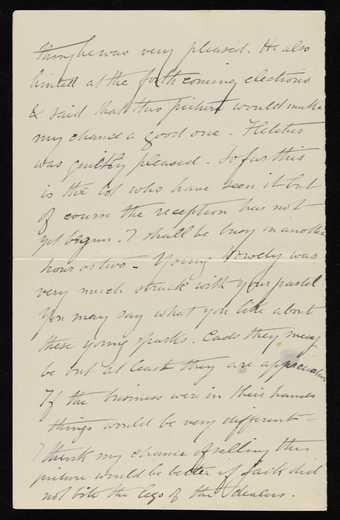 thing he was very pleased. He also
hinted at the forthcoming elections
& said that this picture would make
my chance a good one - Fletcher
was quietly pleased - So far this
is the lot who have seen it but
of course the reception has not
yet begun. I shall be busy in another
hour or two - Young Rowdy was
very much struck with your pastel
You may say what you like about
these young sparks. Cads they may
be but at least they are appreciative
If the business were in their hands
things would be very different -
I think my chance of selling this
picture would be better if Jack did
not bite the legs of the dealers.